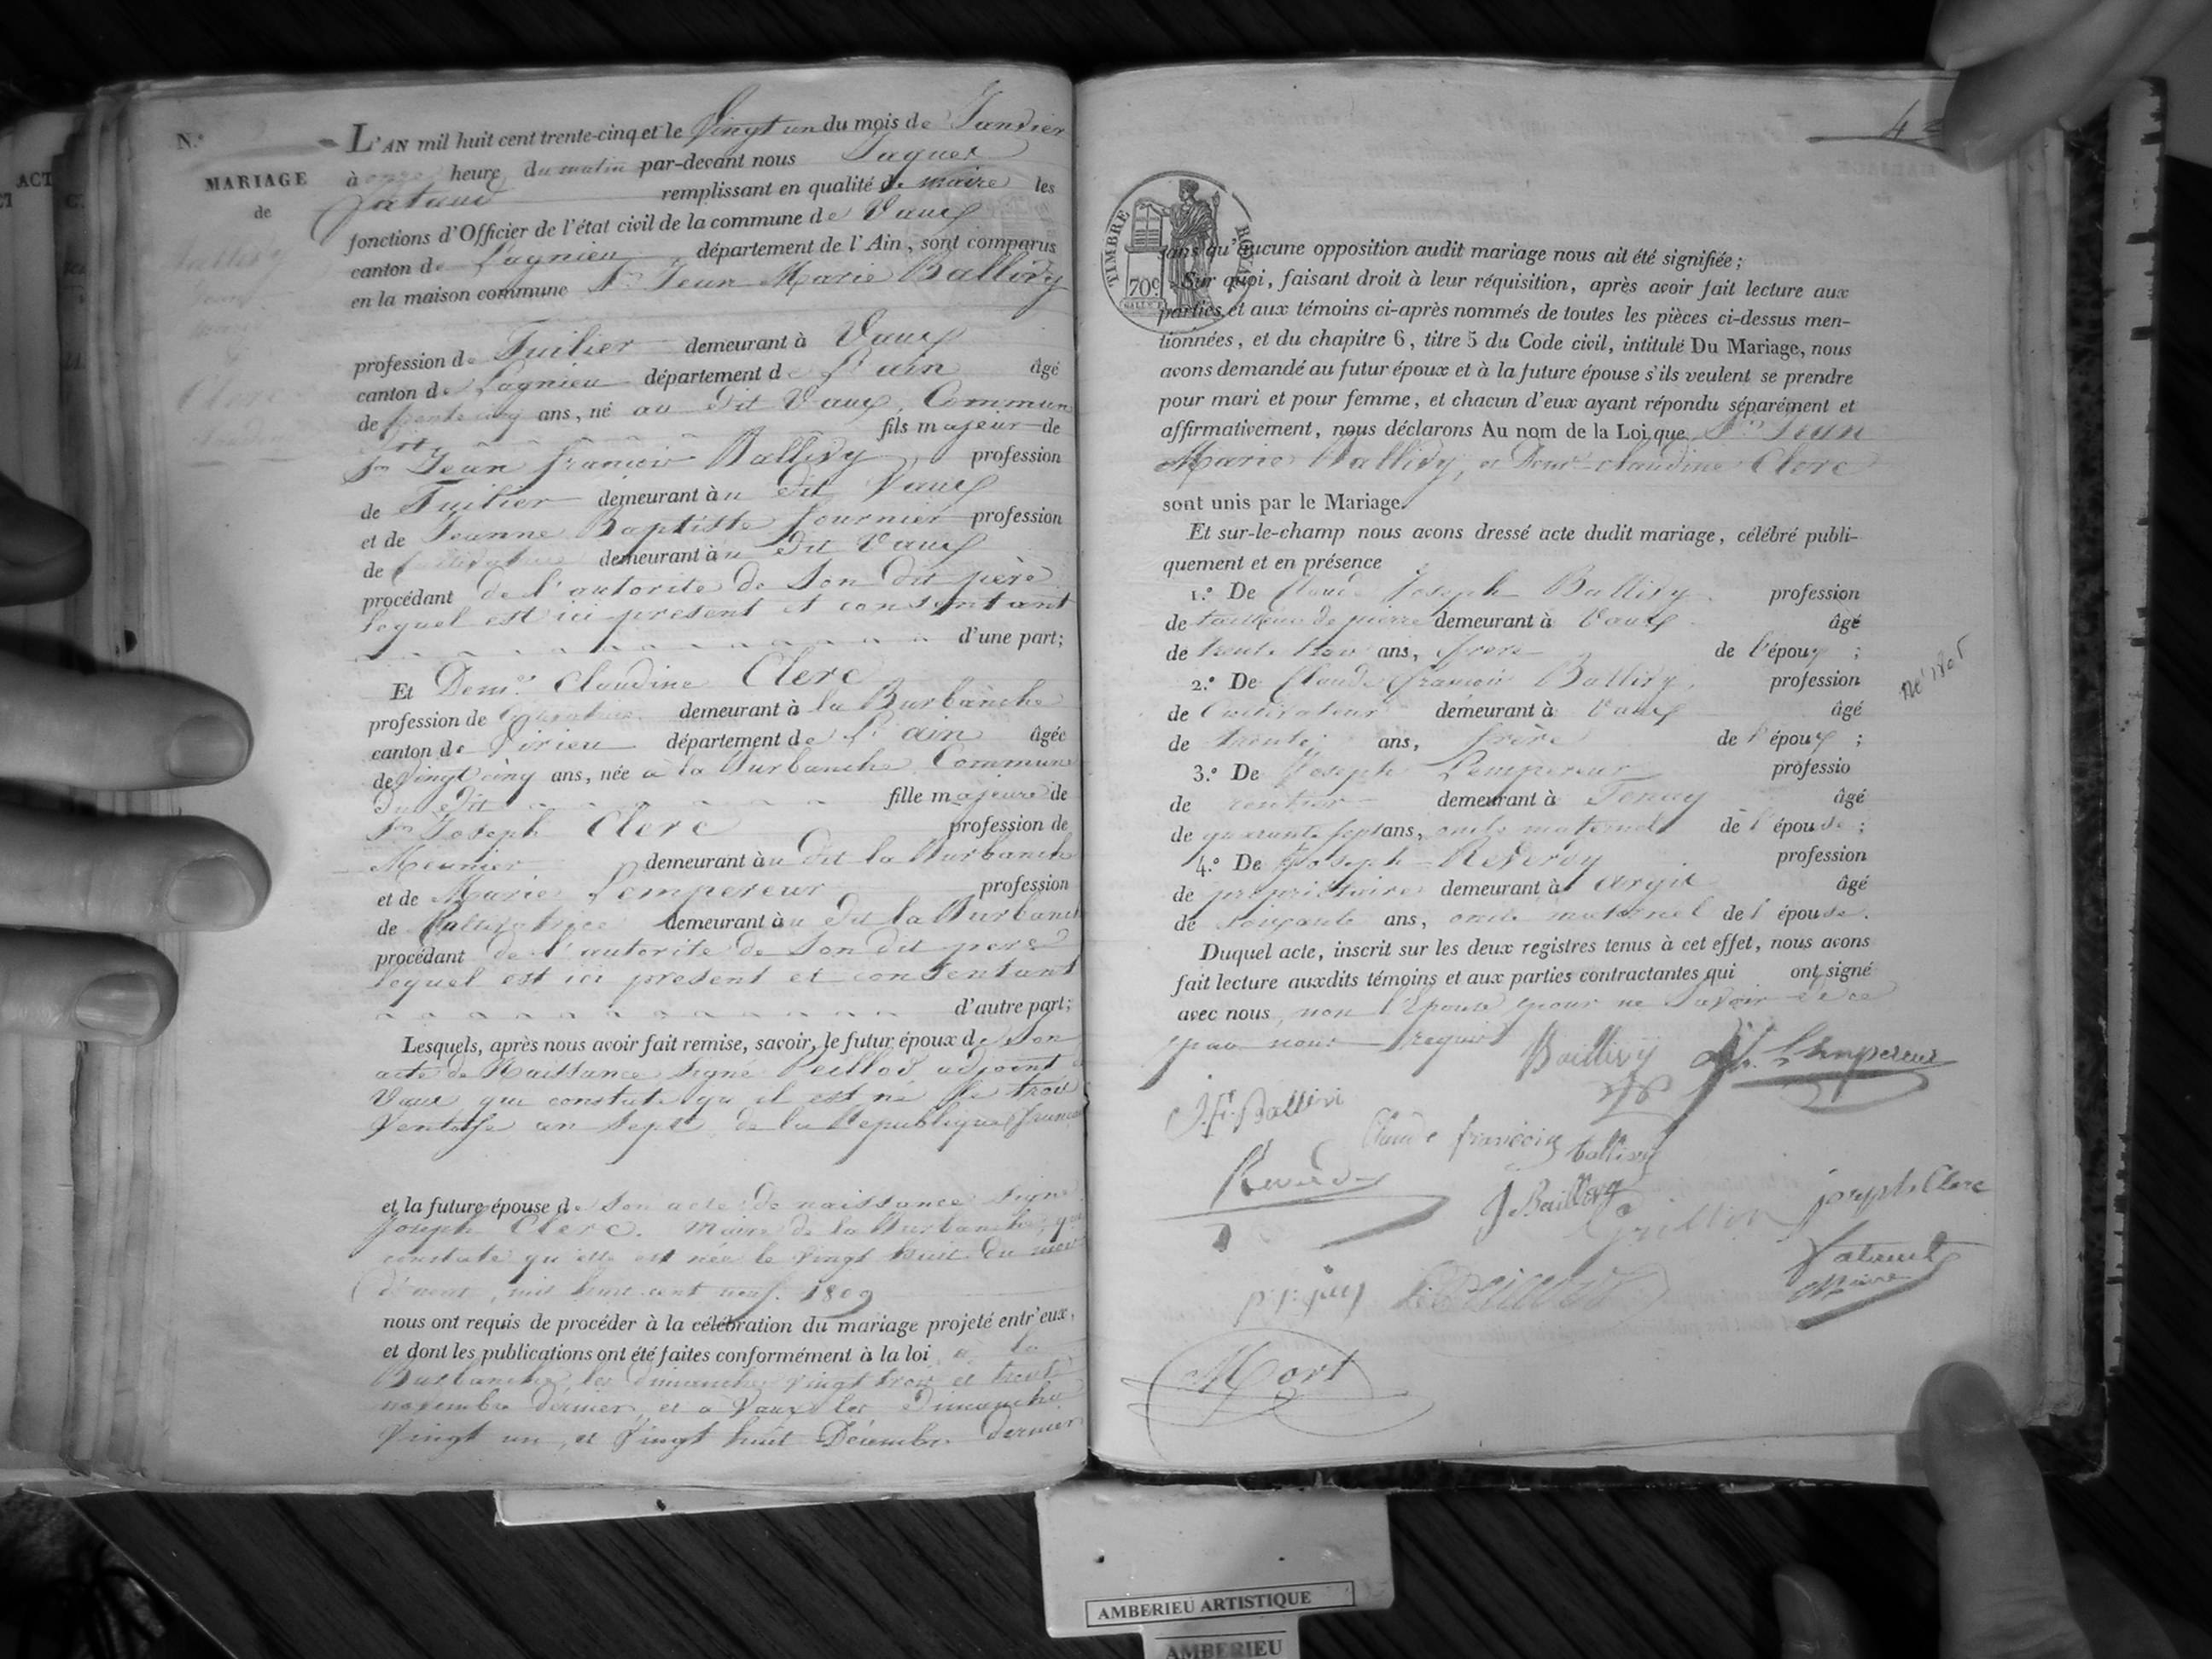 N.°
MARIAGE
de
L'AN mil huit cent trente-cinq et le Vingt un du mois de Janvier
à onze heure du matin par-devant nous Jaques
remplissant en qualité de maire les
fonctions d'Officier de l'état civil de la commune de Vaux
canton de Lagnieu département de l'Ain, sont comparus
en la maison commune Sr Jean Marie Ballivy
profession de Tuilier demeurant à Vaux
canton de Lagnieu département de l'ain âgé
de trente cinq ans, né au dit Vaux, Commun
fils majeur de
Sr Jean francois Ballivy profession
de Tuilier demeurant àu dit Vaux
et de Jeanne Baptiste fournier profession
de demeurant àu dit Vaux
procédant de l'autorité de Son dit père
lequel est ici présent et consentant
d'une part;
Et Demlle Claudine Clerc
profession de demeurant à la Burbanche
canton de Virieu département de l'ain âgée
de Vingt cinq ans, née à la Burbanche Commune
du dit fille majeure de
Sr Joseph Clerc profession de
Meunier demeurant àu dit la Burbanche
et de Marie Lempereur profession
de Cultivatrice demeurant àu dit la Burbanch
procédant de l'autorité de Son dit pere
lequel est ici présent et consentant
d'autre part;
Lesquels, après nous avoir fait remise, savoir, le futur époux de Son
acte de Naissance Signé Peillod adjoint
Vaux qui constate qu'il est né le trois
Ventose an Sept de la Republique franca
et la future épouse de Son acte de naissance Signé
Joseph Clerc. Maire de la Burbanche, qui
constate qu'elle est née le Vingt huit du mois
d'aout, mil huit cent neuf. 1809
nous ont requis de procéder à la célébration du mariage projeté entr'eux,
et dont les publications ont été faites conformément à la loi, a la
Burbanche, les dimanches vingt trois et trente
novembre dernier, et a Vaux les Dimanche
Vingt un, et Vingt huit Décembre dernier
TIMBRE ROYAL
70c
sans qu'aucune opposition audit mariage nous ait été signifiée;
Sur quoi, faisant droit à leur réquisition, après avoir fait lecture aux
parties et aux témoins ci-après nommés de toutes les pièces ci-dessus men-
tionnées, et du chapitre 6, titre 5 du Code civil, intitulé Du Mariage, nous
avons demandé au futur époux et à la future épouse s'ils veulent se prendre
pour mari et pour femme, et chacun d'eux ayant répondu séparément et
affirmativement, nous déclarons Au nom de la Loi que Sr Jean
Marie Ballivy, et Demlle claudine Clerc
sont unis par le Mariage.
Et sur-le-champ nous avons dressé acte dudit mariage, célébré publi-
quement et en présence
1.° De Claude Joseph Ballivy profession
de tailleur de pierre demeurant à Vaux âgé
de trente trois ans, frere de l'époux ;
2.° De Claude francois Ballivy, profession
de Cultivateur demeurant à Vaux âgé
de trente ans, frère de l'époux ;
né 1805
3.° De Joseph Lempereur professio
de rentier demeurant à Tenay âgé
de quarante sept ans, oncle maternel de l'épouse ;
4.° De Joseph Reverdy profession
de propriétaire demeurant à argit âgé
de soixante ans, oncle maternel de l'épouse.
Duquel acte, inscrit sur les deux registres tenus à cet effet, nous avons
fait lecture auxdits témoins et aux parties contractantes qui ont signé
avec nous, non l'Epouse pour ne Savoir de ce
par nous requis
Baillivÿ
Lempereur
J.F. Ballivi
Claude francois ballivy
Reverdy
J Baillivy
Grillion
joseph Clerc
Jataud
Maire
Mort
AMBERIEU ARTISTIQUE
AMBERIEU